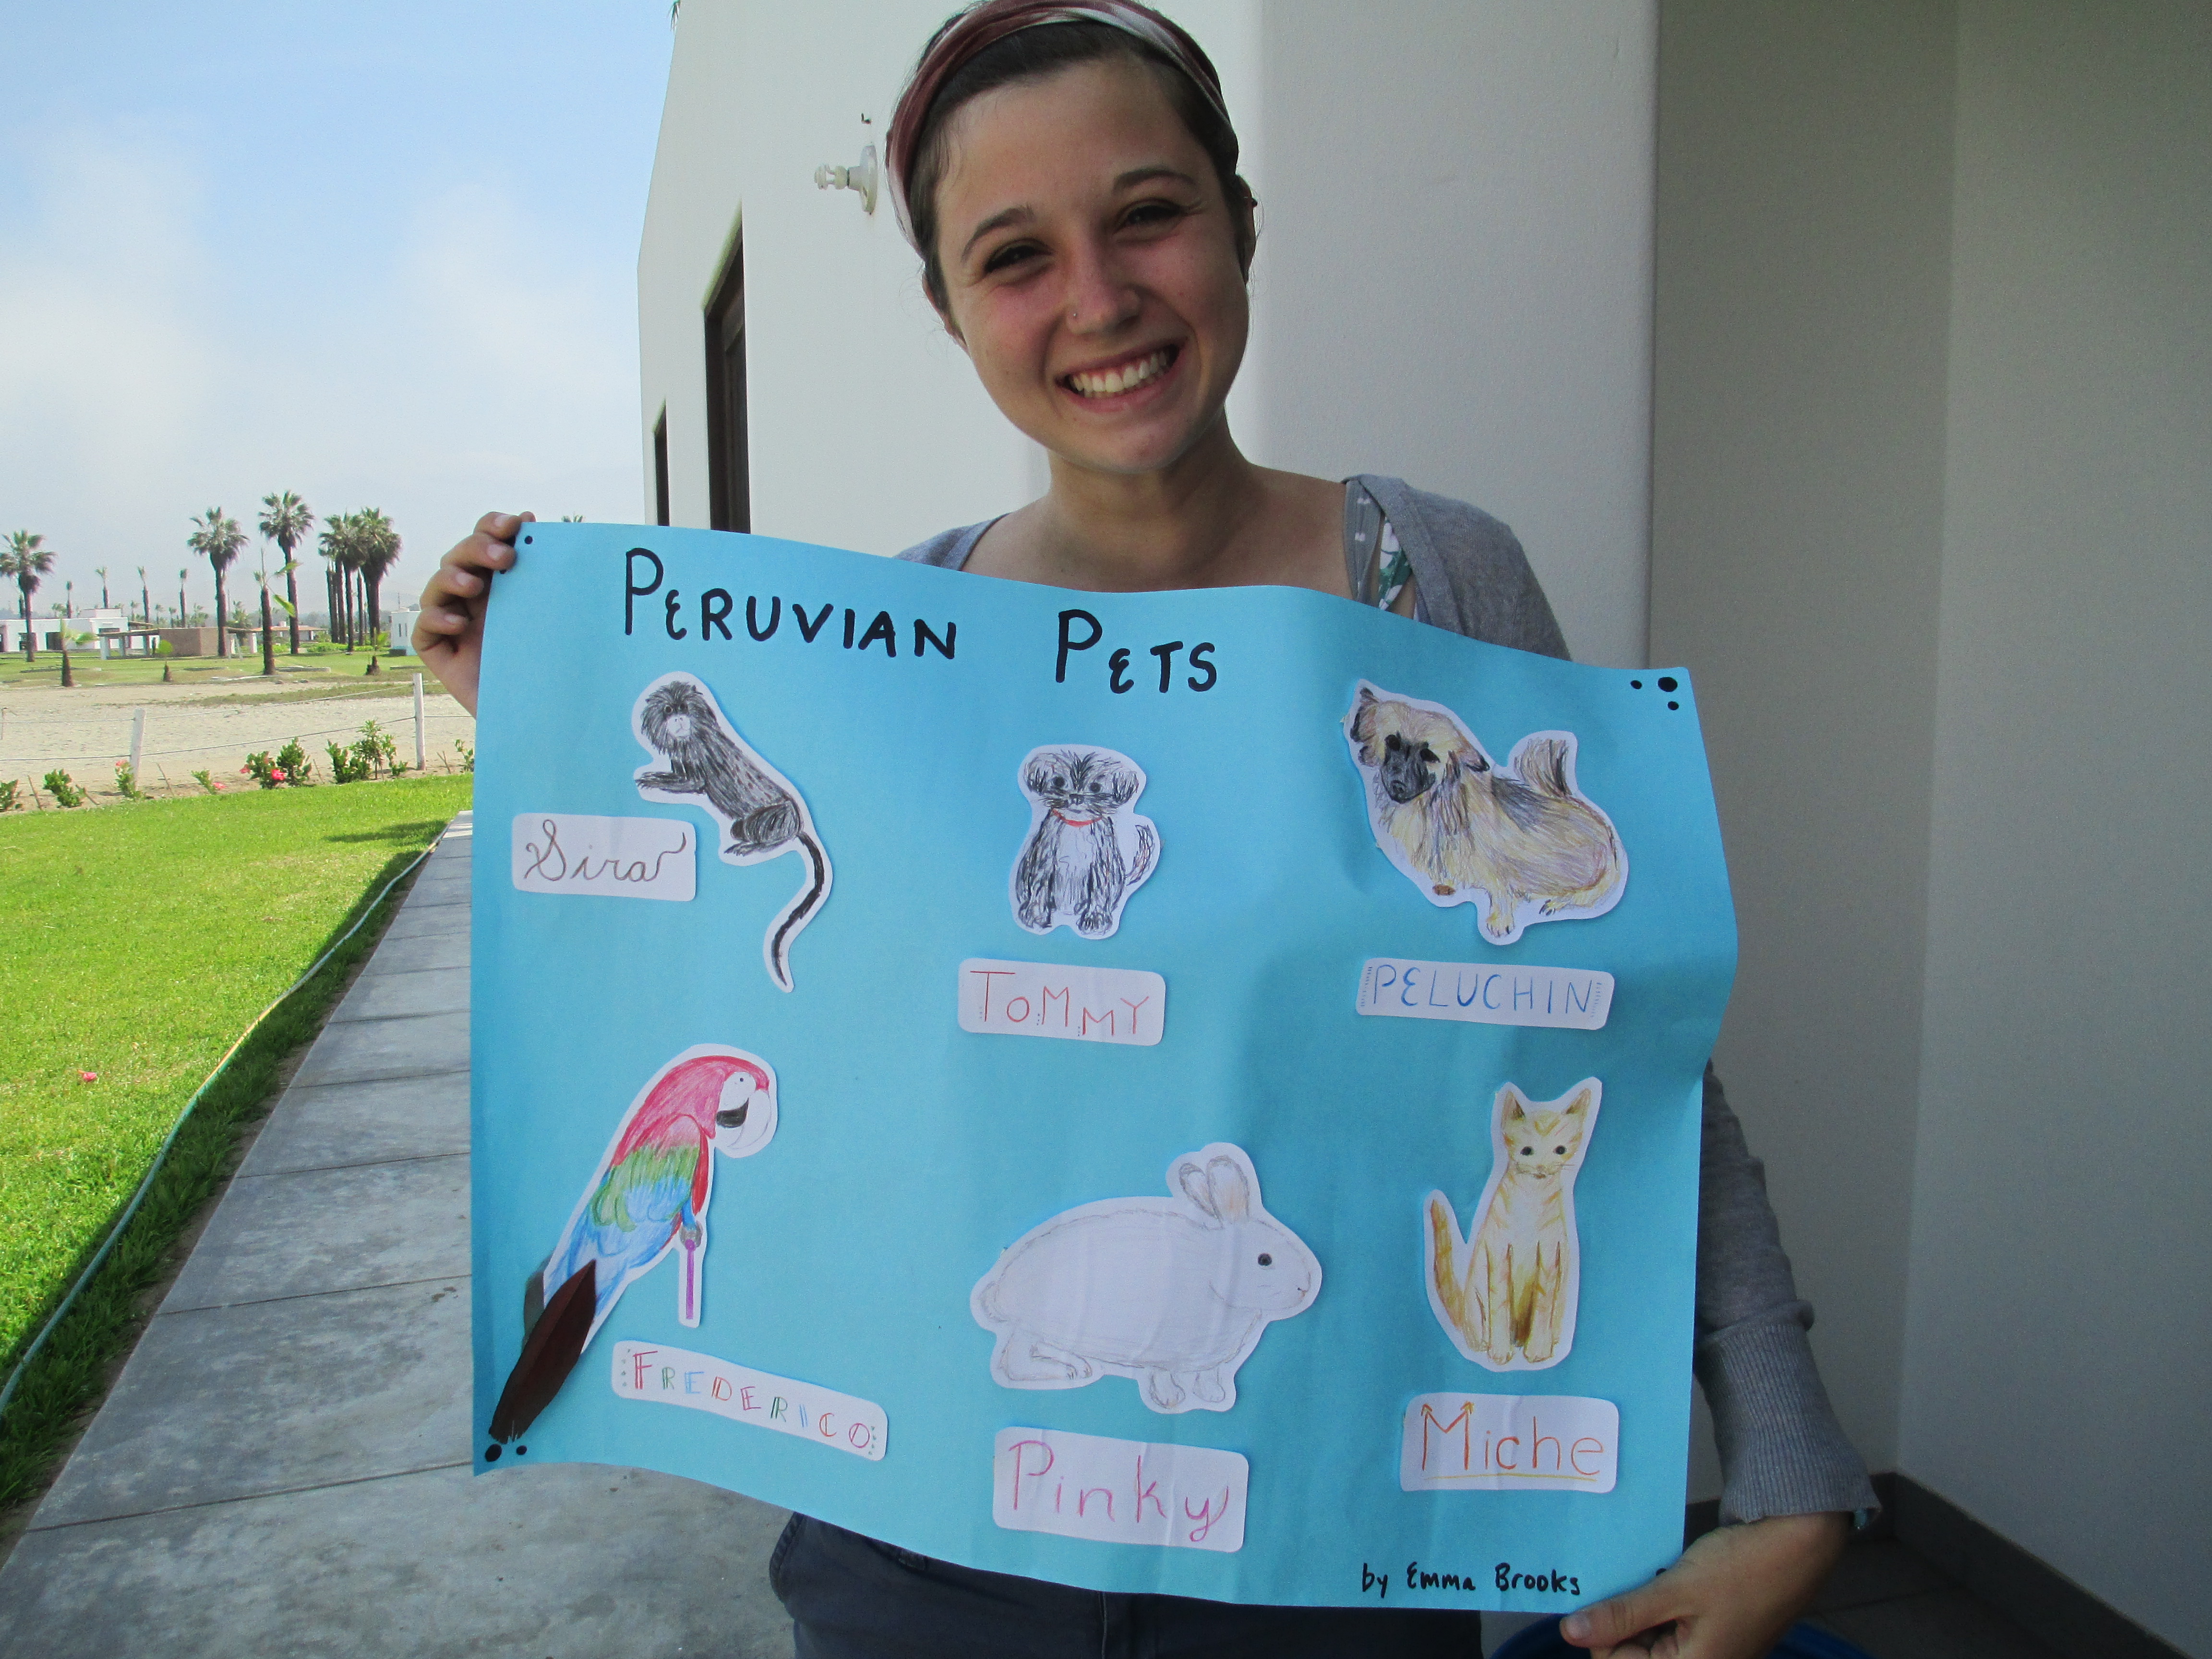 PERUVIAN PETS
Sira
TOMMY
PELUCHIN
FREDERICO
Pinky
Miche
by Emma Brooks